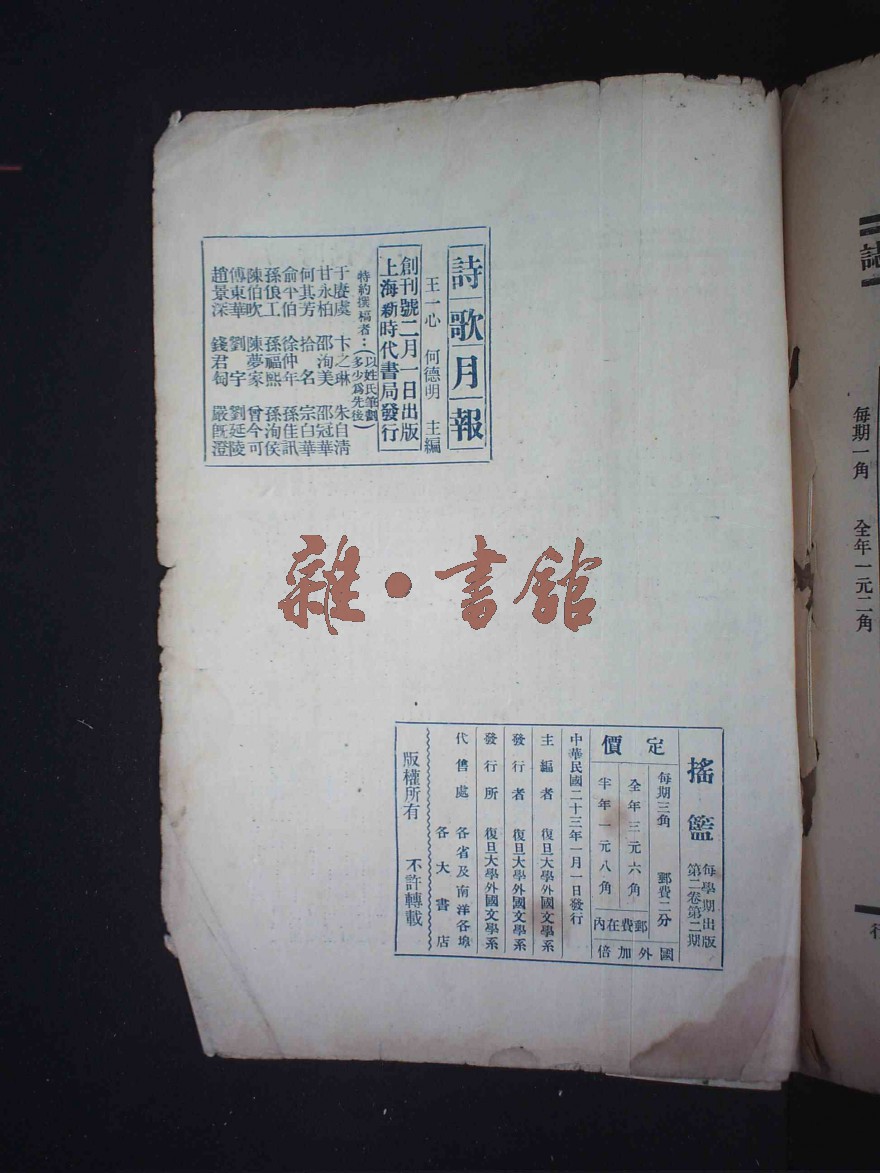 詩歌月報
王一心 何德明 主編
創刊號二月一日出版
上海新時代書局發行
特約撰稿者：(以姓氏筆劃多少爲先後)
于賡虞 卞之琳 朱自清
甘永柏 邵洵美 邵冠華
何其芳 拾名 宗白華
俞平伯 徐仲年 孫佳訊
孫俍工 孫福熙 孫洵侯
陳伯吹 陳夢家 曾今可
傅東華 劉宇 劉延陵
趙景深 錢君匋 嚴旣澄
雜·書館
搖籃
每學期出版
第二卷第二期
定價
每期三角 郵費二分
全年三元六角
半年一元八角
郵費在內
國外加倍
中華民國二十三年一月一日發行
主編者 復旦大學外國文學系
發行者 復旦大學外國文學系
發行所 復旦大學外國文學系
代售處 各省及南洋各埠
各大書店
版權所有 不許轉載
誌
每期一角 全年一元二角